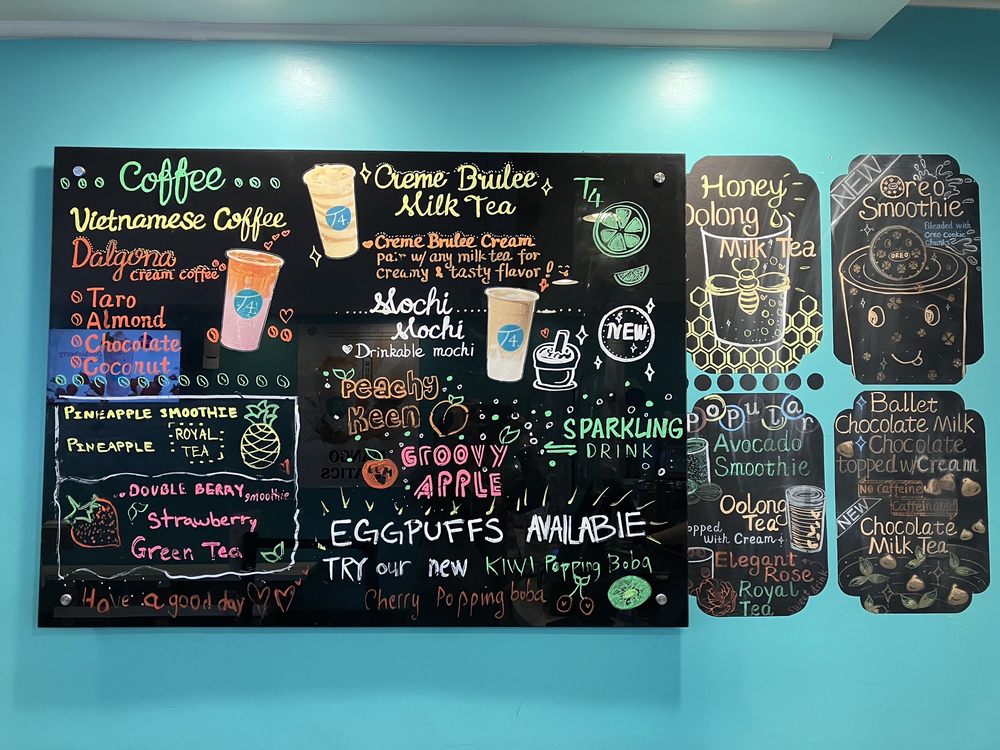 Coffee
Vietnamese Coffee
Dalgona
cream coffee
Taro
Almond
Chocolate
Coconut
PINEAPPLE SMOOTHIE
PINEAPPLE ROYAL TEA
DOUBLE BERRY smoothie
Strawberry
Green Tea
Have a good day
T4
T4
Creme Brulee
Milk Tea
Creme Brulee Cream
pair w/ any milk tea for
creamy & tasty flavor!
T4
Mochi
Mochi
Drinkable mochi
T4
NEW
Peachy
Keen
GROOVY
APPLE
SPARKLING
DRINK
EGGPUFFS AVAILABLE
TRY our new KIWI Popping Boba
Cherry Popping boba
Honey
Oolong
Milk Tea
NEW
Oreo
Smoothie
Blended with
Oreo Cookie
Chunks
OREO
Popular
Avocado
Smoothie
Oolong
Tea
opped
with Cream
Elegant
Rose
Royal
Tea
Ballet
Chocolate Milk
Chocolate
topped w/Cream
No Caffeine
Caffeinated
NEW
Chocolate
Milk Tea